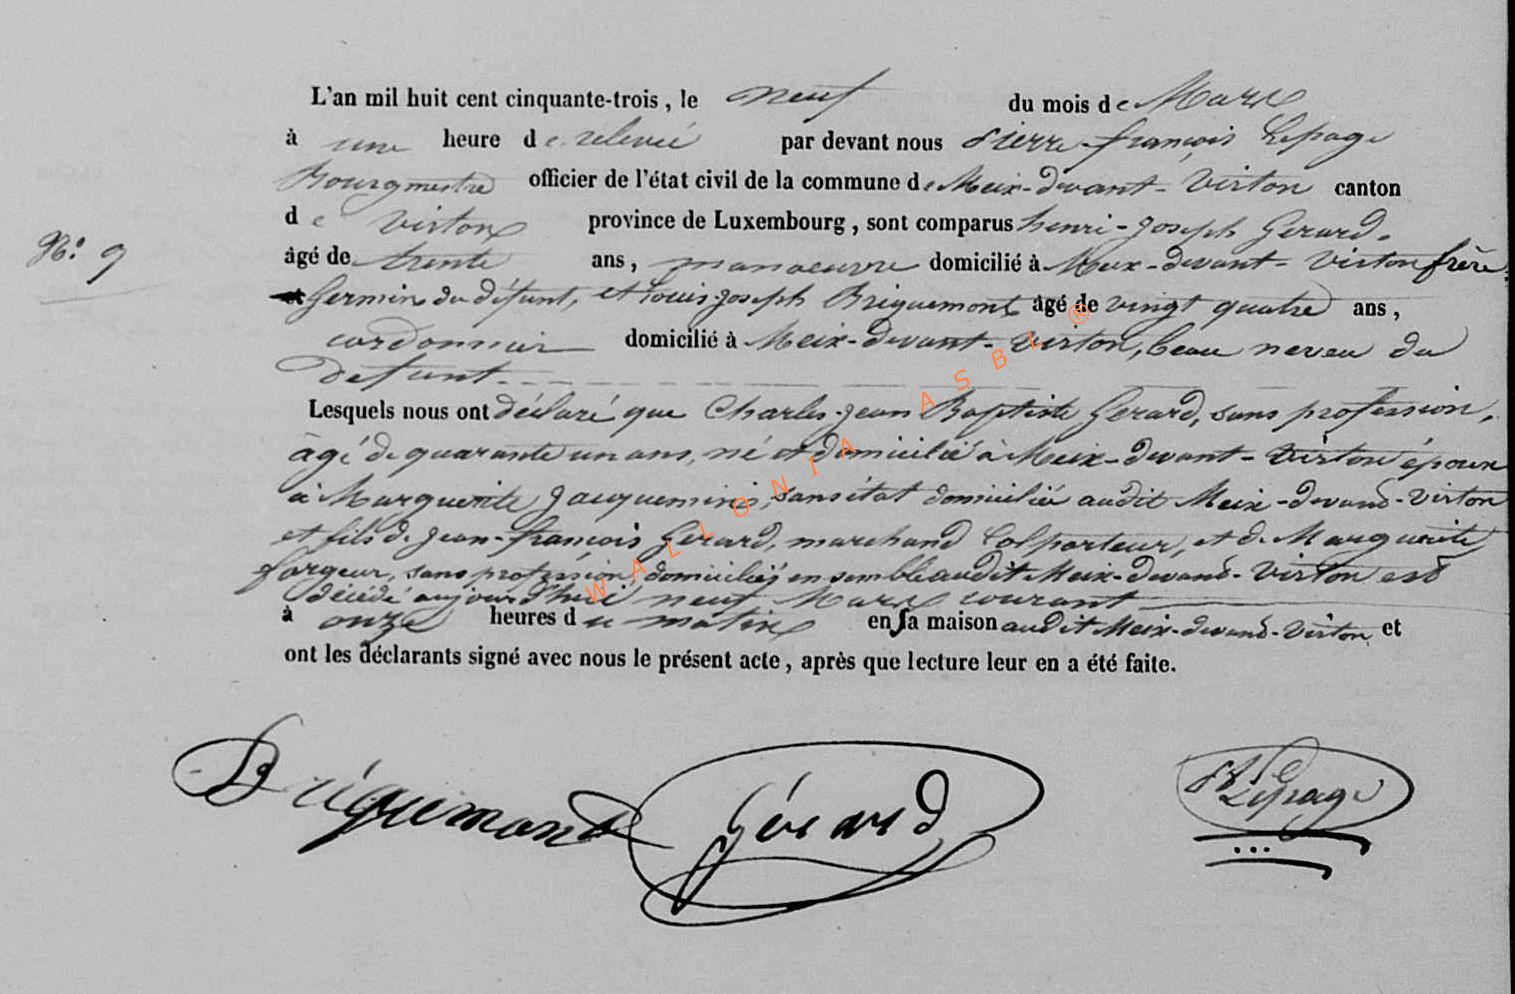 L'an mil huit cent cinquante-trois, le neuf du mois de Mars
à une heure de relevée par devant nous Pierre-françois Lepage
Bourgmestre officier de l'état civil de la commune de Meix-devant-Virton canton
de Virton province de Luxembourg, sont comparus henri-Joseph Gerard,
N° 9
âgé de trente ans, manoeuvre domicilié à Meix-devant-Virton frère
Germin du défunt, et Louis-joseph Briquemont âgé de vingt quatre ans,
cordonnier domicilié à Meix-devant-Virton, beau neveu du
defunt
Lesquels nous ont déclaré que Charles-jean Baptiste Gerard, sans profession,
âgé de quarante un ans, né et domicilié à Meix-devant-Virton époux
à Marguerite Jacqueminis, sans état domiciliée audit Meix-devant-Virton
et fils de jean-francois Gerard, marchand Colporteur, et de Marguerite
forgeur, sans profession, domiciliés ensemble audit Meix-devant-Virton est
décédé aujourd'hui neuf Mars courant
à onze heures du matin en sa maison audit Meix-devant-Virton et
ont les déclarants signé avec nous le présent acte, après que lecture leur en a été faite.
Briquemont Gérard Lepage
WALLONIA ASBL ®